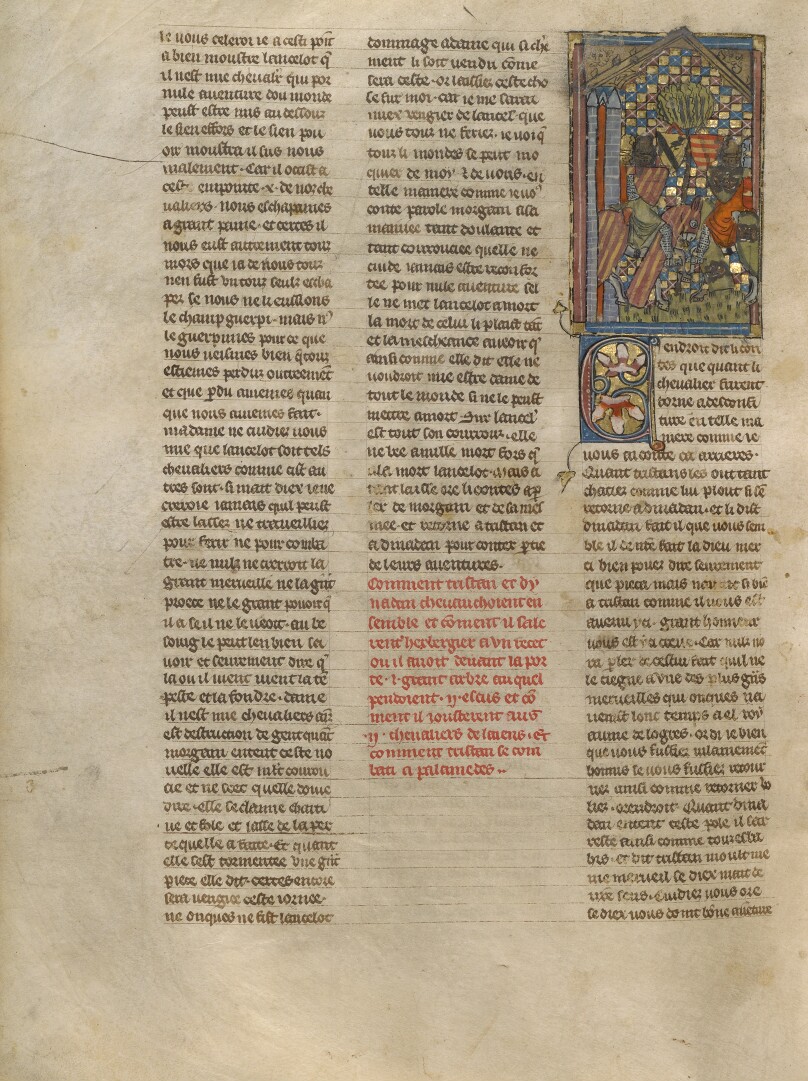 le uous celeroi ie a cesti poit
a bien moustre lancelot q̄
il nest mie cheualr̄ qui por
nule auenture dou monde
peust estre mis au dessouz
le sien effors et le sien pou
oir moustra il sus nous
malement. Car il ocist a
cest empointe .x. de noz che
ualiers. nous eschapames
a grant paine. et certes il
nous eust autrement touz
mors que ia de nous touz
nen fust un tout seulz escha
pez se nous ne li eussions
le champ guerpi. mais n9
le guerpimes pour ce que
nous ueismes bien q̄ touz
estiemes perdus outreemēt
et que p̄du auiemes quan
que nous auiemes fait.
madame ne cuidiez uous
mie que lancelot soit telz
cheualiers comme cist au
tres sont. si mait diex ie ne
creroie iamais quil peust
estre lassez ne traueilliez
pour ferir ne pour comba
tre. ne nulz ne creroit la
grant merueille ne la gr̄nt
proece ne le grant pouoir q̄
il a se il ne le ueoit. au be
soing le peut len bien sa
uoir et seurement dire q̄
la ou il uient uient la tē
peste et la foudre. dame
il nest mie cheualiers aīz
est destruction de gent quāt
morgain entent ceste no
uelle elle est mlt courou
cie et ne scet quelle doiue
dire. elle se claime chaiti
ue et fole et lasse de la per
te quelle a faite. Et quant
elle sest tormentee une grāt
piece elle dit. certes encore
sera uengiee ceste iornee.
ne onques ne fist lancelot
dommage a dame qui si chie
ment li soit uendu cōme
sera ceste. or laissiez ceste cho
se sur moi. car ie me saurai
miex uengier de lancel' que
uous touz ne feriez. ie uoi q̄
touz li mondes se peut mo
quier de moy & de uous. en
telle maniere comme ie uo9
conte parole morgain a sa
maisniee tant doulante et
tant courrouciee quelle ne
cuide iamais estre reconfor
tee pour nule auenture se
le ne met lancelot a mort
la mort de celui li plaist tāt
et la mescheance auenir q̄
ainsi comme elle dit elle ne
uoudroit mie estre dame de
tout le monde si ne le peust
mettre a mort. Sur lancel'
est tout son courrouz. elle
ne bee a nulle mort fors q̄
a la mort lancelot. Mais a
tant laisse ore li contes a p̄
ler de morgain et de sa mes
niee. et retorne a tristan et
a dinadan pour conter p̄tie
de leurs auentures.
Comment tristan et dy
nadan cheuauchoient en
semble et cōment il sale
rent herbergier a un recet
ou il auoit deuant la por
te .i. grant arbre auquel
pendoient .ij. escus et cō
ment il iousterent aus
.ij. cheualiers de laiens. Et
comment tristan se com
bati a palamedes.
Cendroit dit li con
tes que quant li
cheualier furent
torne a desconfi
ture en telle ma
niere comme ie
uous ai conte ca arrieres.
Quant tristans les ot tant
chacies comme lui plout si sē
retorne a dinadan. et li dist
dinadan fait il que uous sem
ble il de nr̄e fait la dieu mer
ci bien pouez dire seurement
que pieca mais nauint si biē
a tristan comme il uous est
auenu ici. grant honneur
uous est ca creue. Car nulz no
ra p̄ler de cestui fait quil ne
le tiegne a une des plus grās
merueilles qui onques ua
uenist lonc temps a el roy
aume de logres. or di ie bien
que uous fussiez uilainnemēt
honnis se uous fussiez retour
nez ainsi comme retorner uo
liez orendroit. Quant dinad
dan entent ceste pole il sar
reste ainsi comme touz esba
his. et dit tristan moult me
me merueil se diex mait de
ur̄e sens. Cuidiez uous ore
se diex uous doint bōne auēture